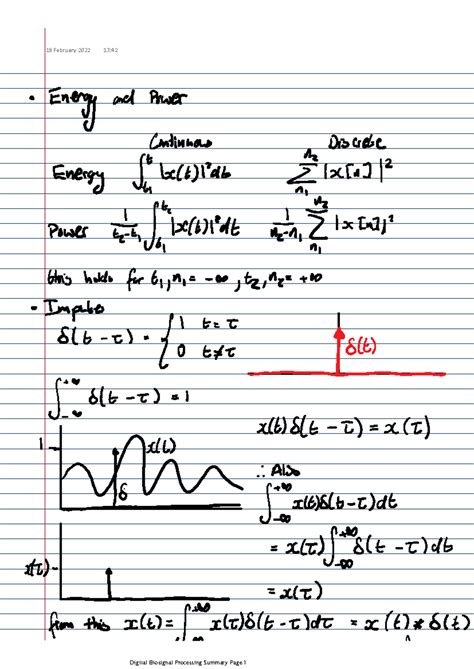 18 February 2022 13:42
• Energy and Power
Continuous Discrete
Energy ∫_{t₁}^{t₂} |x(t)|² dt ∑_{n₁}^{n₂} |x[n]|²
Power 1/(t₂-t₁) ∫_{t₁}^{t₂} |x(t)|² dt 1/(n₂-n₁) ∑_{n₁}^{n₂} |x[n]|²
this holds for t₁,n₁ = -∞, t₂,n₂ = +∞
• Impulse
δ(t-τ) = { 1 t=τ
0 t≠τ
δ(t)
∫_{-∞}^{+∞} δ(t-τ) = 1
x(t)δ(t-τ) = x(τ)
1 x(t)
δ
∴ Also
∫_{-∞}^{+∞} x(t)δ(t-τ)dt
= x(τ) ∫_{-∞}^{+∞} δ(t-τ)dt
x(τ)
= x(τ)
from this x(t) = ∫_{-∞}^{+∞} x(τ)δ(t-τ)dτ = x(t) * δ(t)
Digital Biosignal Processing Summary Page 1